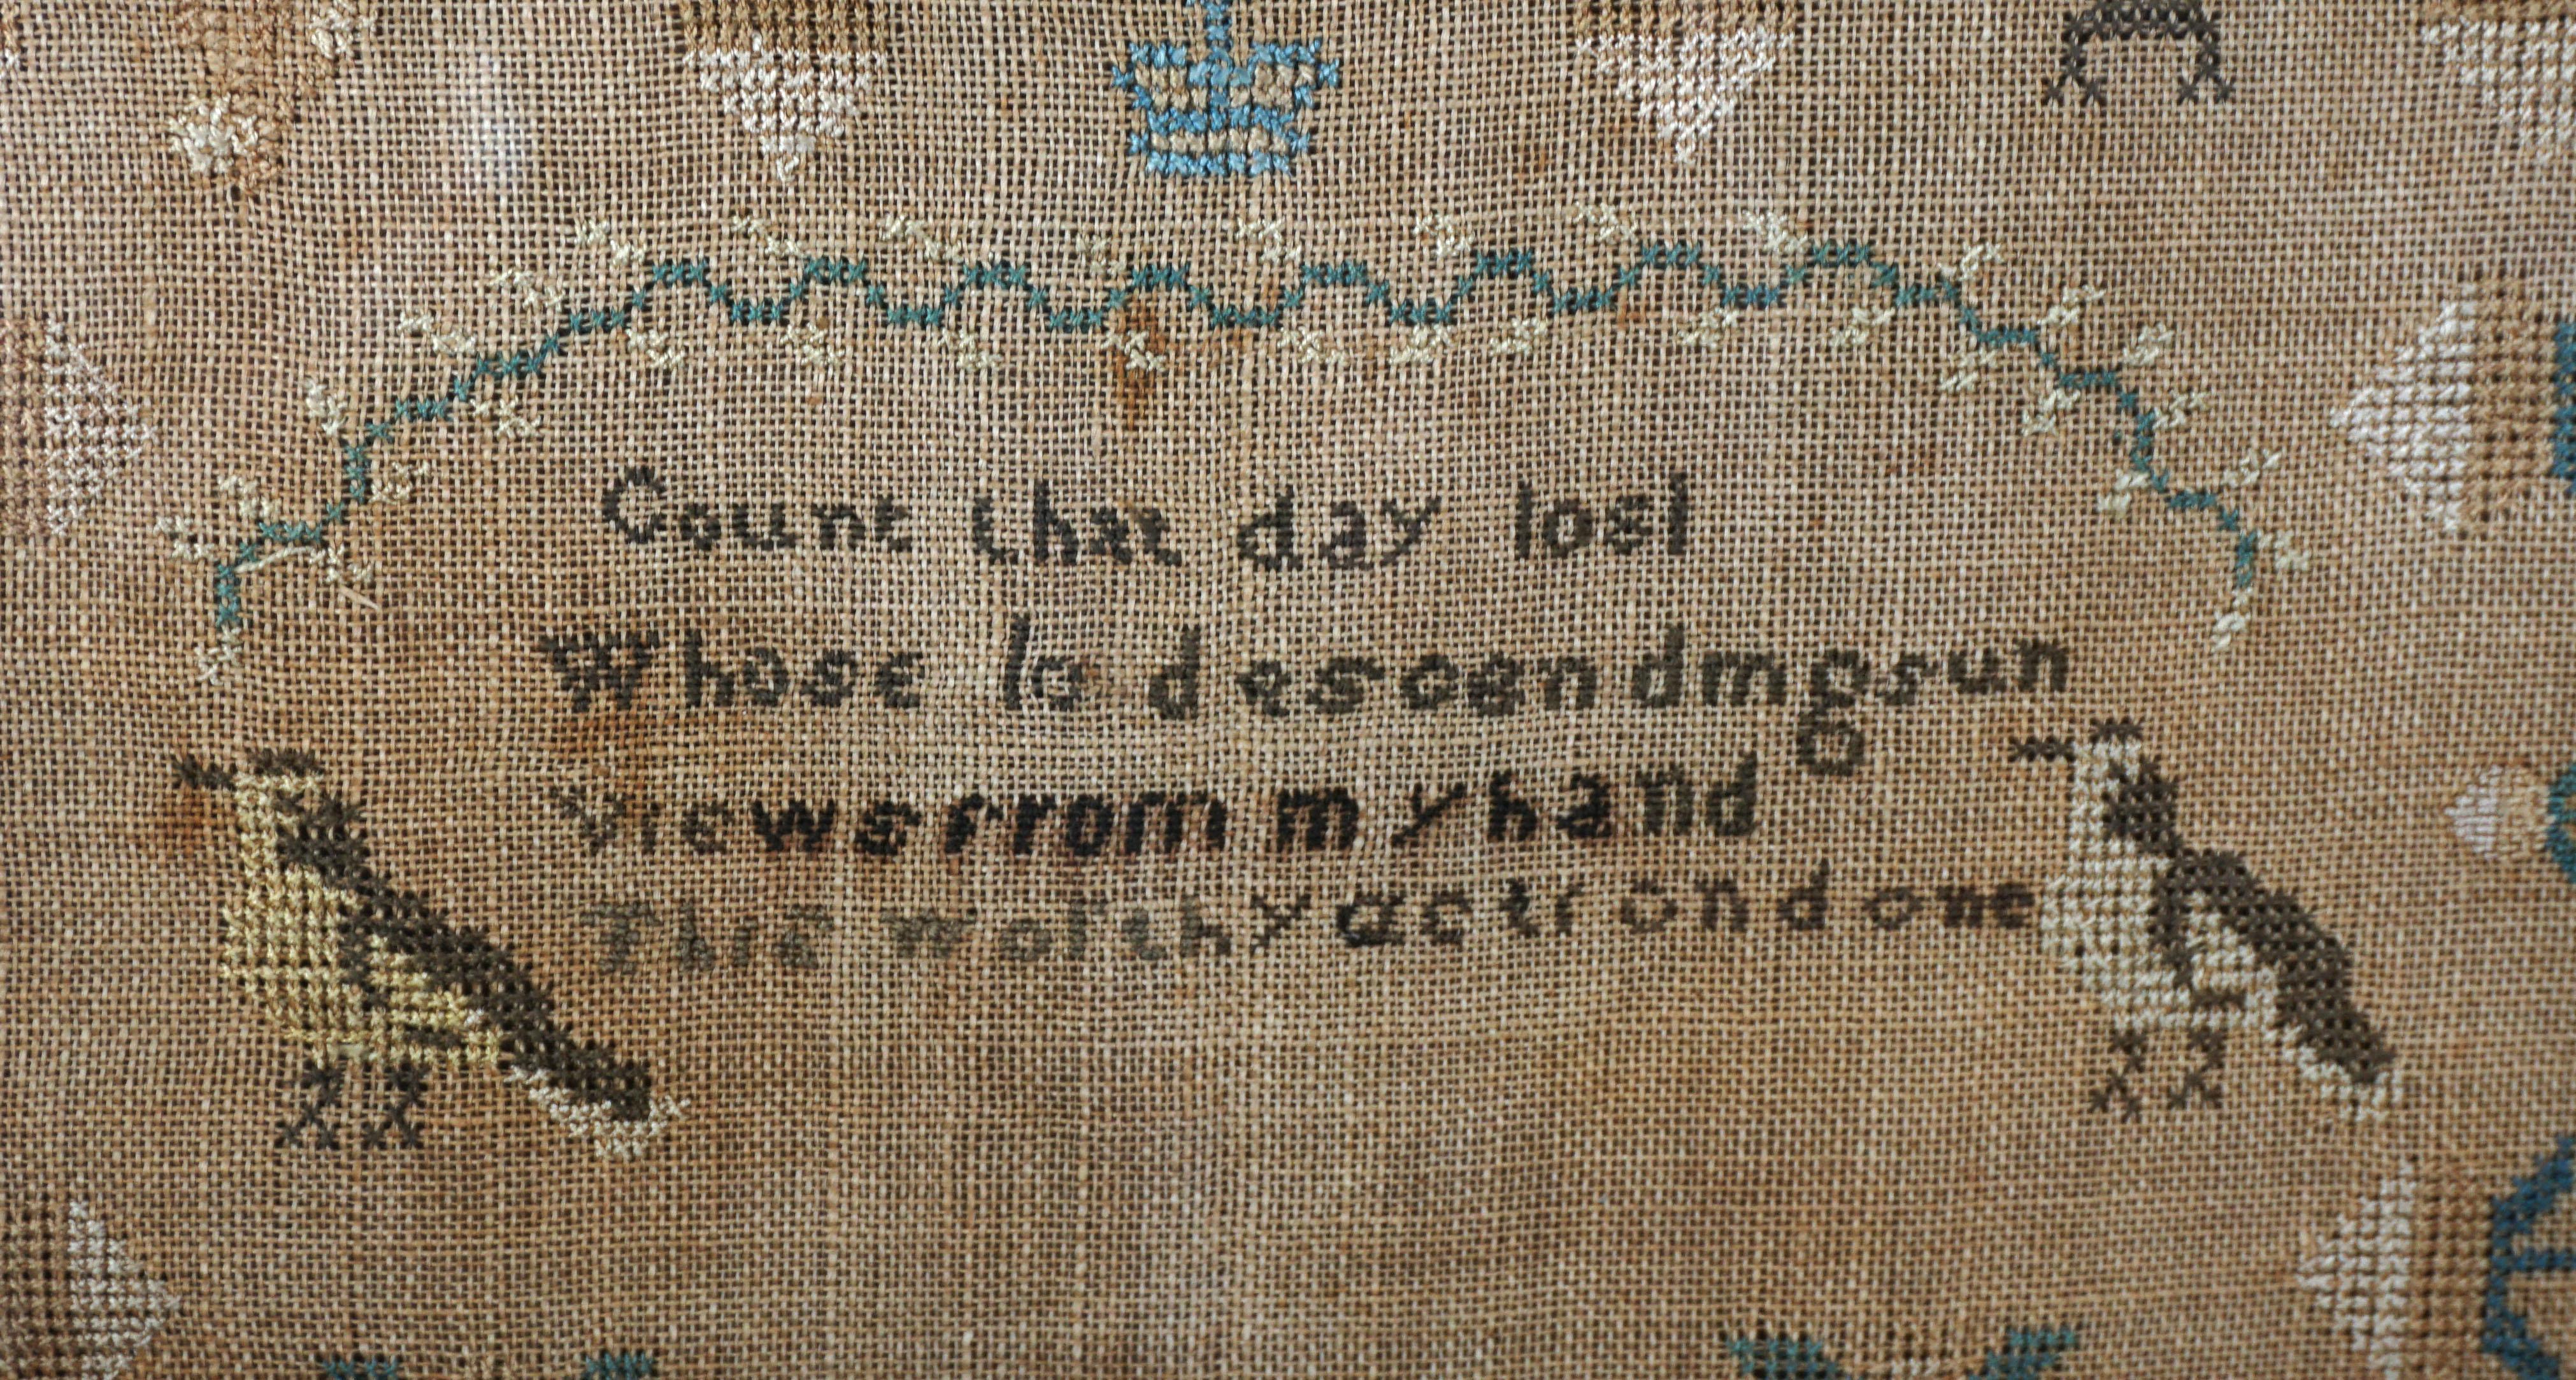 Count that day lost
Whose lo descending sun
Views from my hand
This worthy action done